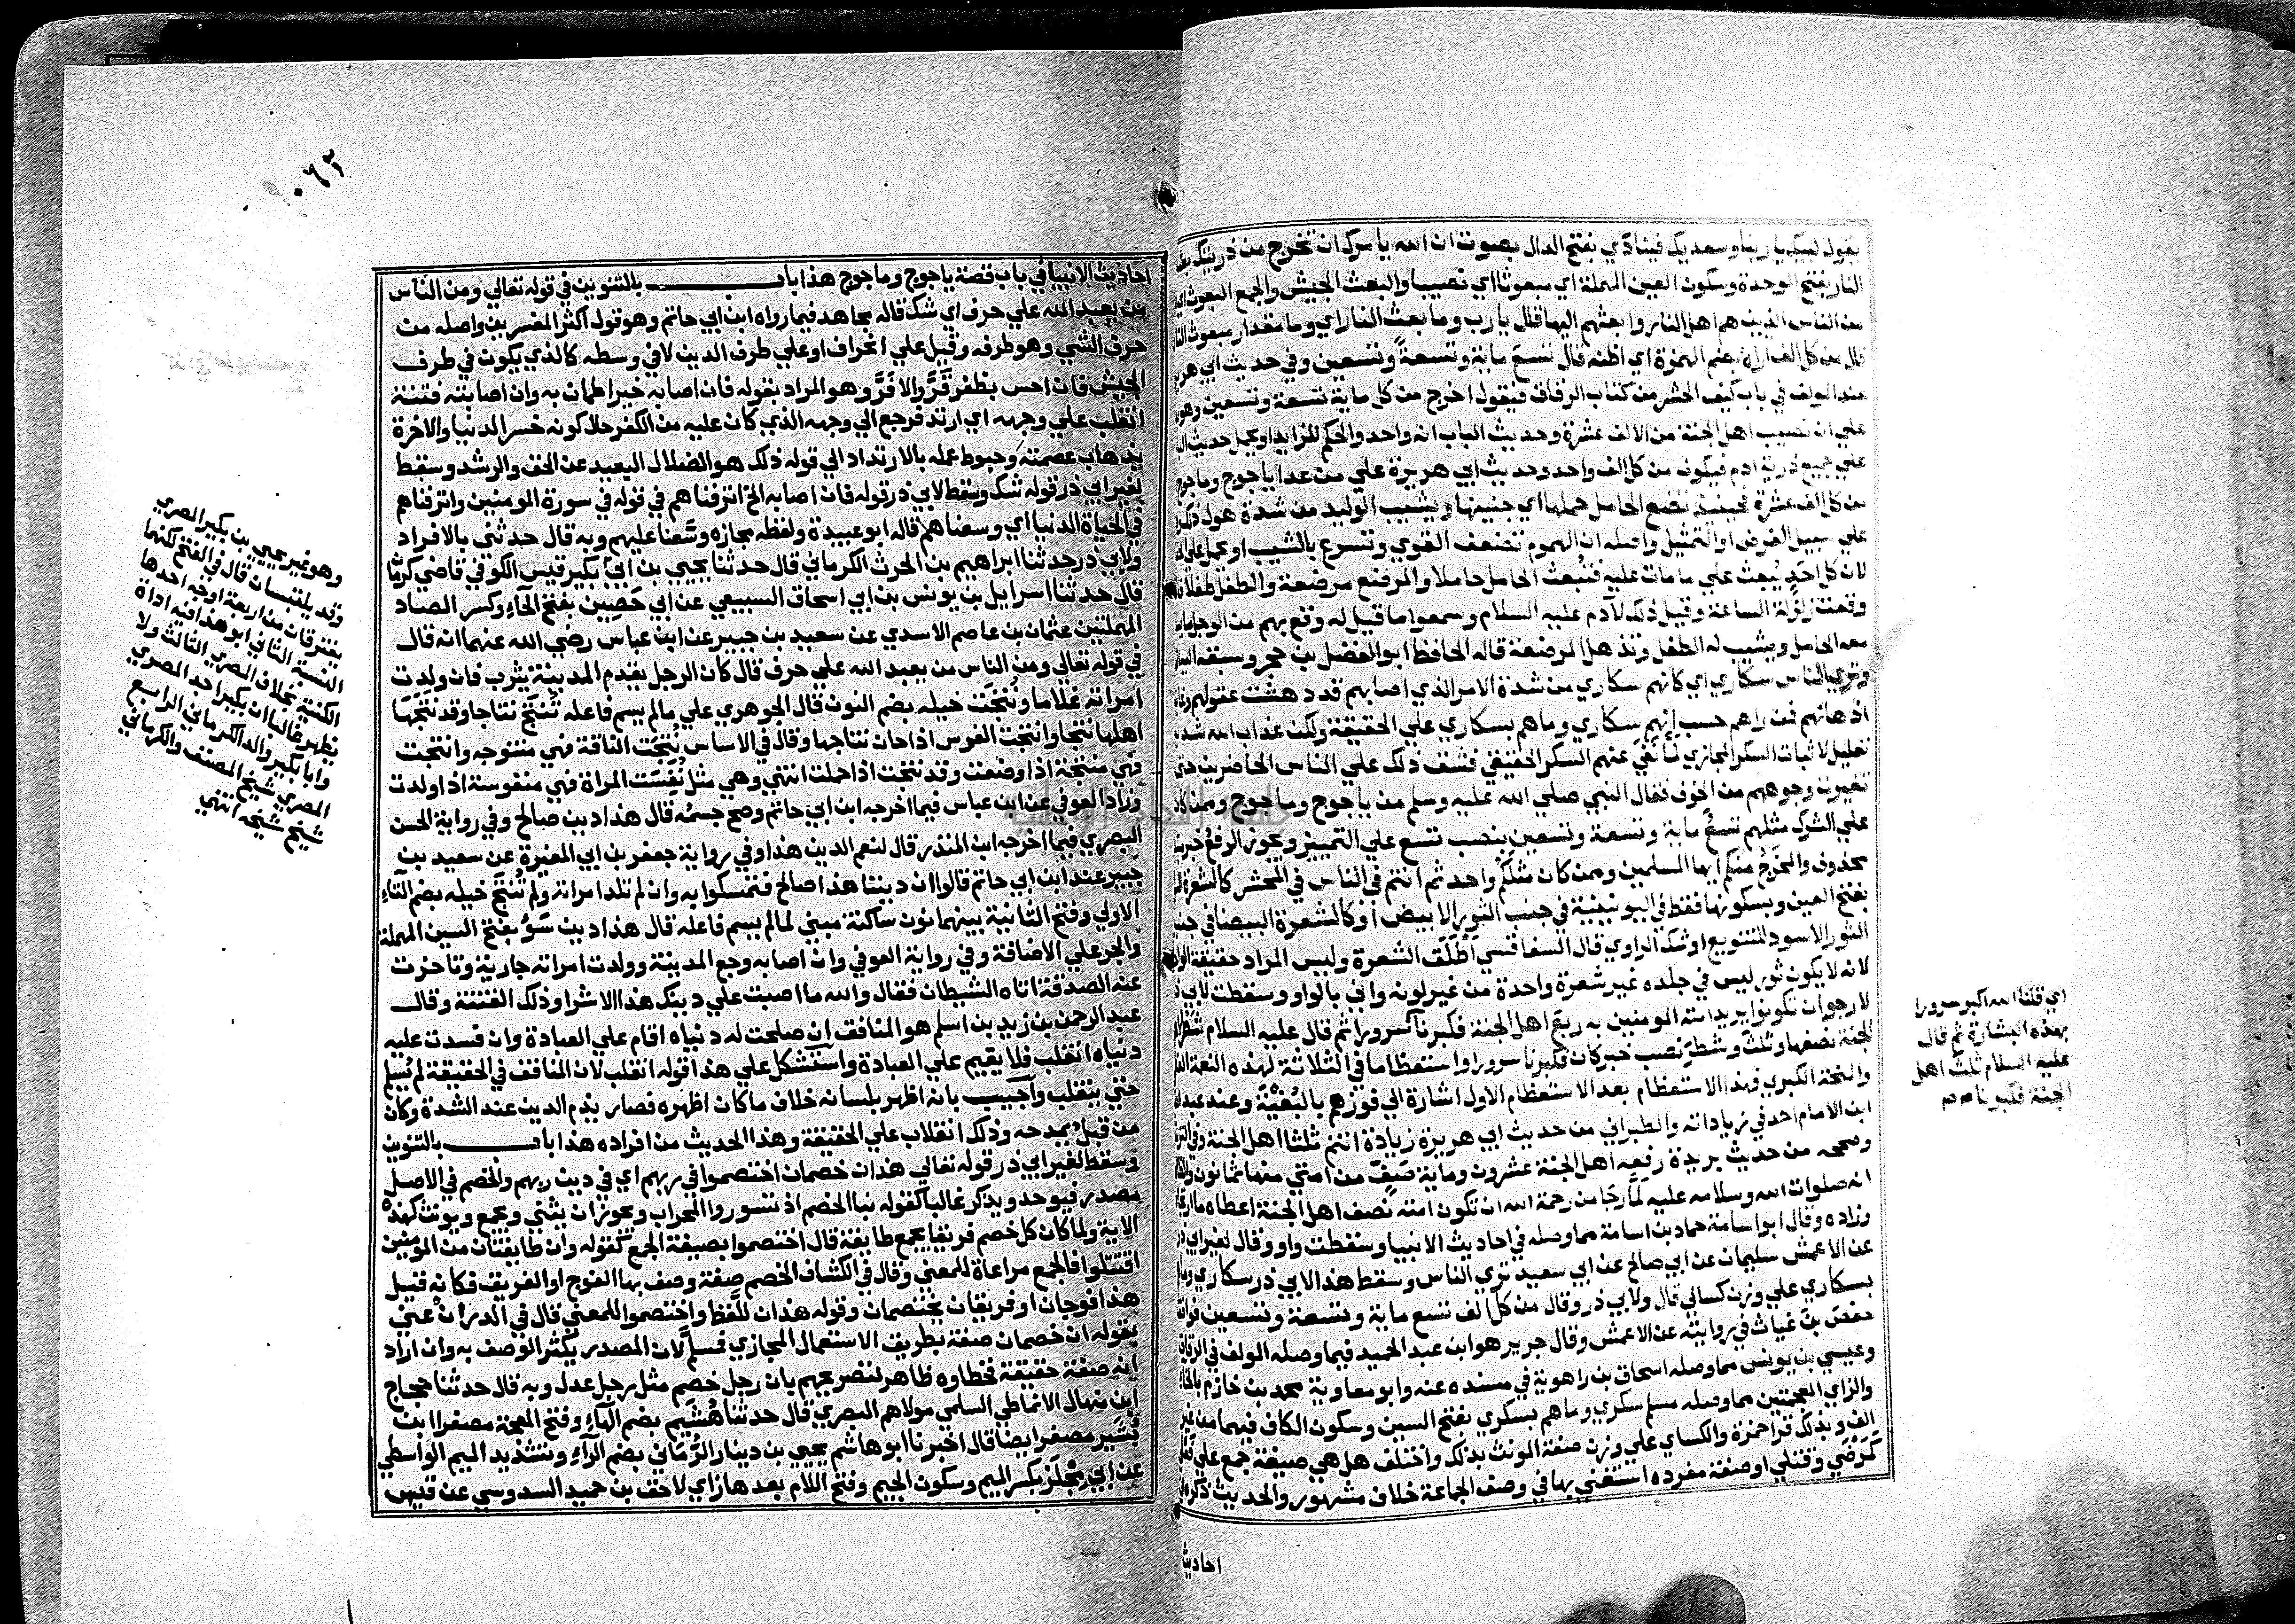 يقول لبيك ربنا وسعديك فينادي بفتح الدال بصوت ان الله يامرك ان تخرج من ذريتك
النار بفتح الموحدة وسكون العين المهملة اي مبعوثا اي نصيبا والبعث الجيش والجمع البعوث
من الناس الذين هم اهل النار وابعثهم اليها قال يارب وما بعث النار اي وما مقدار مبعوث
قال من كل الف اراه بضم الهمزة اي اظنه قال تسع ماية وتسعة وتسعين وفي حديث ابي
عند المولف في باب كيف الحشر من كتاب الرقاق فيقول اخرج من كل ماية تسعة وتسعين وهو
علي ان نصيب اهل الجنة من الالف عشرة وحديث الباب انه واحد والحكم للزايد او يحمل حديث
علي جميع ذرية ادم فيكون من كل الف واحد وحديث ابي هريرة علي من عدا ياجوج وماجوج
من كل الف عشرة فحينئذ تضع الحامل حملها اي جنينها ويشيب الوليد من شدة هول ذلك
علي سبيل الفرض او التمثيل واصله ان الهموم تضعف القوي وتسرع بالشيب او يحمل علي
لان كل احد يبعث علي ما مات عليه فتبعث الحامل حاملا والمرضع مرضعة والطفل طفلا
وقعت زلزلة الساعة وقيل ذلك لآدم عليه السلام وسمعوا ما قيل له وقع بهم من الوجل
معه الحامل ويشيب له الطفل وتذهل المرضعة قاله الحافظ ابو الفضل بن حجر وسبقه
وتري الناس سكاري اي كانهم سكاري من شدة الامر الذي اصابهم قد دهشت عقولهم
اذهانهم فمن راهم حسب انهم سكاري وما هم بسكاري علي الحقيقة ولكن عذاب الله شديد
تعليل لاثبات السكر المجازي لما نفي عنهم السكر الحقيقي فشق ذلك علي الناس الحاضرين حتي
تغيرت وجوههم من الخوف فقال النبي صلي الله عليه وسلم من ياجوج وماجوج وممن كان
علي الشرك مثلهم تسع ماية وتسعة وتسعين بنصب تسع علي التمييز ويجوز الرفع خبر
محذوف والمخرج منكم ايها المسلمين وممن كان مثلكم واحد ثم انتم في الناس في المحشر كالشعرة
بفتح العين وبسكونها فقط في اليونينية في جنب الثور الابيض او كالشعرة البيضا في جنب
الثور الاسود للتنويع او شك الراوي قال السفاقسي اطلق الشعرة وليس المراد حقيقة
لانه لا يكون ثور ليس في جلده غير شعرة واحدة من غير لونه واني بالواو وسقطت لابي
لارجو ان تكونوا يريد امته المومنين به ربع اهل الجنة فكبرنا سرورا ثم قال عليه السلام شطر
الجنة نصفها وثلث وشطر نصب خبر كان فكبرنا سرورا واستعظاما في الثلاثة لهذه النعمة
والنحة الكبري فهذا الاستعظام بعد الاستعظام الاول اشارة الي فوزهم بالبغية وعند عبد الله
ابن الامام احمد في زياداته والطبراني من حديث ابي هريرة زيادة انتم ثلثا اهل الجنة وفي
وصححه من حديث بريدة رفعه اهل الجنة عشرون وماية صف من امتي منها ثمانون
انه صلوات الله وسلامه عليه لما رجا من رحمة الله ان تكون امته نصف اهل الجنة اعطاه
وزاده وقال ابو اسامة حماد بن اسامة مما وصله في احاديث الانبيا وسقطت واو وقال لغير ابي
عن الاعمش سليمان عن ابي صالح عن ابي سعيد تري الناس وسقط هذا لابي ذر سكاري وما
بسكاري علي وزن كسالي قال ولابي ذر وقال من كل الف تسع ماية وتسعة وتسعين
حفص بن غياث في روايته عن الاعمش وقال جرير هو ابن عبد الحميد فيما وصله المولف في
وعيسي بن يونس مما وصله اسحاق بن راهوية في مسنده عنه وابو معاوية محمد بن خازم
والزاي المعجمتين مما وصله مسلم سكري وما هم بسكري بفتح السين وسكون الكاف فيهما من غير
الف وبذلك قرا حمزة والكساي علي وزن صفة المونث بذلك واختلف هل هي صيغة جمع علي
كمرضي وقتلي او صفة مفردة استغني بها في وصف الجماعة خلاف مشهور والحديث
احاديث
اي قلنا الله اكبر سرورا
بهذه البشارة ثم قال
عليه السلام ثلث اهل
الجنة فكبرنا
احاديث الانبيا في باب قصة ياجوج وماجوج هذا باب بالتنوين في قوله تعالي ومن الناس
من يعبد الله علي حرف اي شك قاله مجاهد فيما رواه ابن ابي حاتم وهو قول اكثر المفسرين واصله من
حرف الشي وهو طرفه وقيل علي انحراف او علي طرف الدين لا في وسطه كالذي يكون في طرف
الجيش فان احس بظفر قر والا فر وهو المراد بقوله فان اصابه خير اطمان به وان اصابته فتنة
انقلب علي وجهه اي ارتد فرجع الي وجهه الذي كان عليه من الكفر حال كونه خسر الدنيا والاخرة
بذهاب عصمته وحبوط عمله بالارتداد الي قوله ذلك هو الضلال البعيد عن الحق والرشد وسقط
لغير ابي ذر قوله شك وسقط لابي ذر قوله فان اصابه الخ اترفناهم في قوله في سورة المومنين واترفناهم
في الحياة الدنيا اي وسعناهم قاله ابو عبيدة ولفظه مجازه وسعنا عليهم وبه قال حدثني بالافراد
ولابي ذر حدثنا ابراهيم بن الحرث الكرماني قال حدثنا يحيي بن ابي بكير قيس الكوفي قاضي كرمان
قال حدثنا اسرايل بن يونس بن ابي اسحاق السبيعي عن ابي حصين بفتح الحاء وكسر الصاد
المهملتين عثمان بن عاصم الاسدي عن سعيد بن جبير عن ابن عباس رضي الله عنهما انه قال
في قوله تعالي ومن الناس من يعبد الله علي حرف قال كان الرجل يقدم المدينة يثرب فان ولدت
امراته غلاما ونتجت خيله بضم النون قال الجوهري علي ما لم يسم فاعله تنتج نتاجا وقد نتجها
اهلها نتجا وانتجت الفرس اذا حان نتاجها وقال في الاساس نتجت الناقة فهي منتوجه وانتجت
فهي منتجة اذا وضعت وقد نتجت اذا حملت انتهي وهي مثل نفست المراة فهي منفوسة اذا ولدت
وزاد العوفي عن ابن عباس فيما اخرجه ابن ابي حاتم وصح جسمه قال هذا دين صالح وفي رواية الحسن
البصري فيما اخرجه ابن المنذر قال لنعم الدين هذا وفي رواية جعفر بن ابي المغيرة عن سعيد بن
جبير عند ابن ابي حاتم قالوا ان ديننا هذا صالح فتمسكوا به وان لم تلد امراته ولم تنتج خيله بضم التاء
الاولي وفتح الثانية بينهما نون ساكنة مبني لما لم يسم فاعله قال هذا دين سوء بفتح السين المهملة
والجر علي الاضافة وفي رواية العوفي وان اصابه وجع المدينة وولدت امراته جارية وتاخرت
عنه الصدقة اتاه الشيطان فقال والله ما اصبت علي دينك هذا الا شرا وذلك الفتنة وقال
عبد الرحمن بن زيد بن اسلم هو المنافق ان صلحت له دنياه اقام علي العبادة وان فسدت عليه
دنياه انقلب فلا يقيم علي العبادة واستشكل علي هذا قوله انقلب لان المنافق في الحقيقة لم يسلم
حتي ينقلب واجيب بانه اظهر بلسانه خلاف ما كان اظهره فصار يذم الدين عند الشدة وكان
من قبل يمدحه وذلك انقلاب علي الحقيقة وهذا الحديث من افراده هذا باب بالتنوين
وسقط لغير ابي ذر قوله تعالي هذان خصمان اختصموا في ربهم اي في دين ربهم والخصم في الاصل
مصدر فيوحد ويذكر غالبا كقوله نبا الخصم اذ تسوروا المحراب ويجوز ان يثني ويجمع ويونث كهذه
الاية ولما كان كل خصم فريقا يجمع طايفة قال اختصموا بصيغة الجمع كقوله وان طايفتان من المومنين
اقتتلوا فالجمع مراعاة للمعني وقال في الكشاف الخصم صفة وصف بها الفوج او الفريق فكانه قيل
هذا فوجان او فريقان يختصمان وقوله هذان للفظ واختصموا للمعني قال في الدر ان عني
بقوله ان خصمان صفة بطريق الاستعمال المجازي فمسلم لان المصدر يكثر الوصف به وان اراد
انه صفة حقيقة فخطاوه ظاهر لتصريحهم بان رجل خصم مثل رجل عدل وبه قال حدثنا حجاج
ابن منهال الانماطي السلمي مولاهم البصري قال حدثنا هشيم بضم الهاء وفتح المعجمة مصغرا ابن
بشير مصغرا ايضا قال اخبرنا ابو هاشم يحيي بن دينار الرماني بضم الراء وتشديد الميم الواسطي
عن ابي مجلز بكسر الميم وسكون الجيم وفتح اللام بعدها زاي لاحق بن حميد السدوسي عن قيس
وهو غير يحيي بن بكير المصري
وقد يلتبسان قال في الفتح لكنهما
يفترقان من اربعة اوجه احدها
النسبة الثاني ابو هذا فيه اداة
الكنية بخلاف المصري الثالث ولا
يظهر غالبا ان بكيرا جد المصري
وابا بكير والد الكرماني الرابع
المصري شيخ المصنف والكرماني
شيخ شيخه انتهي